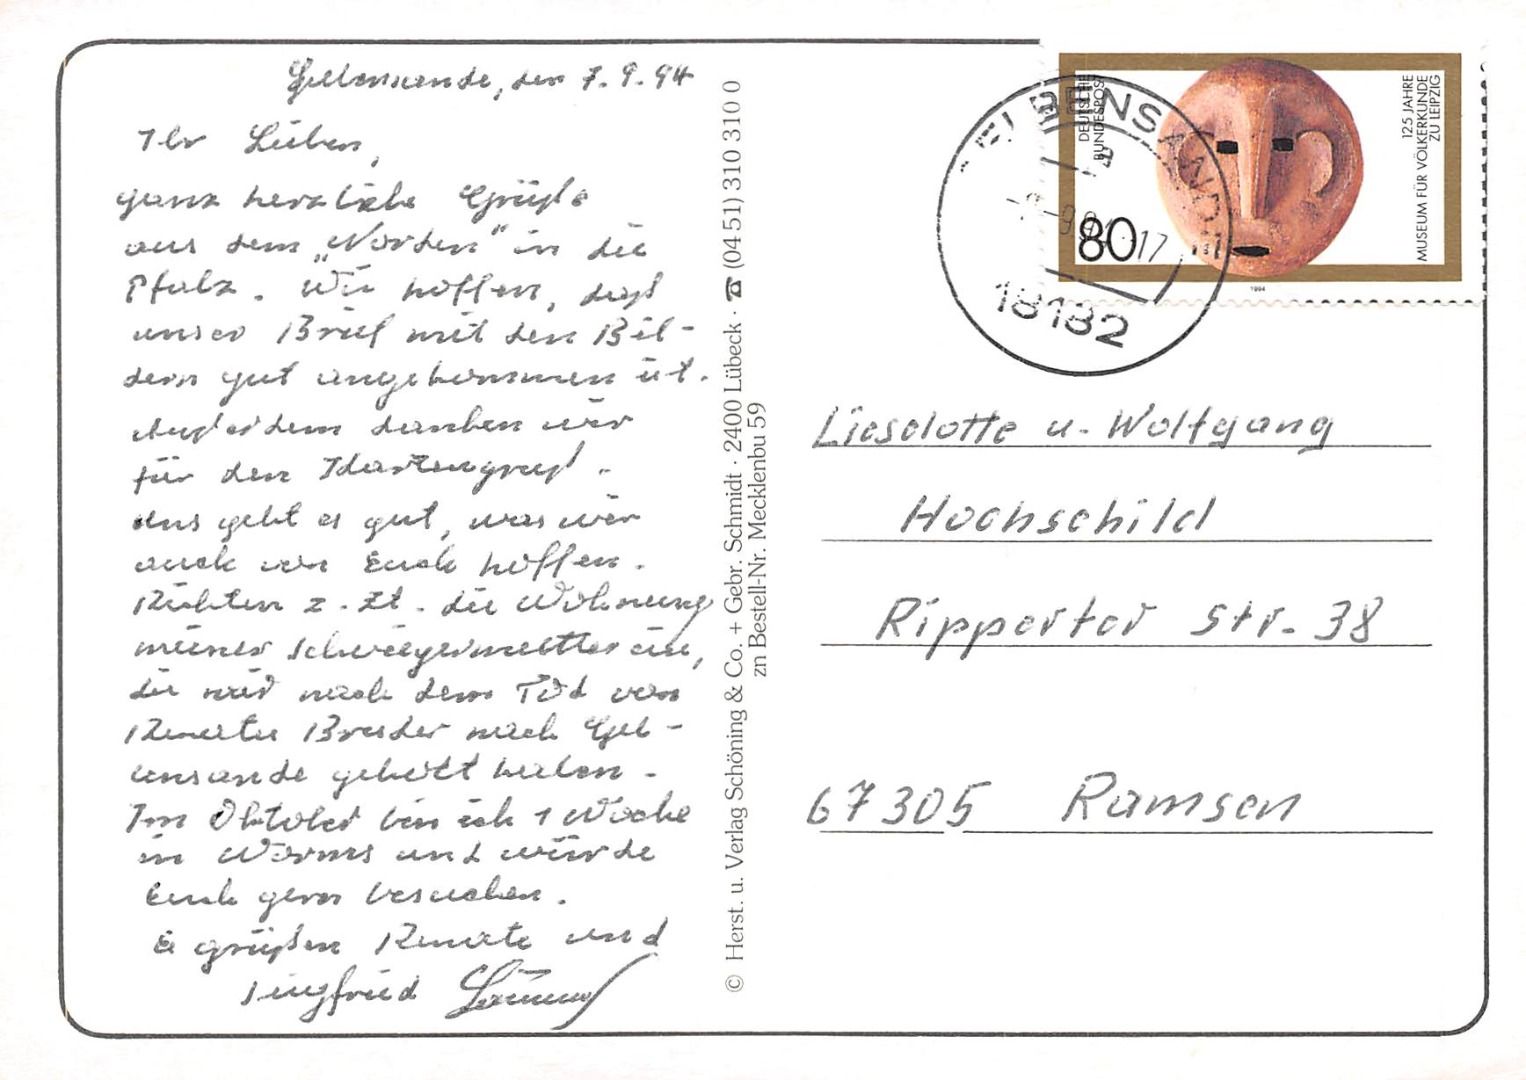 Gelbensande, den 7.9.94
Ihr Lieben,
ganz herzliche Grüße
aus dem „Norden" in die
Pfalz. Wir hoffen, daß
unser Brief mit den Bil-
dern gut angekommen ist.
Außerdem danken wir
für den Kartengruß.
Uns geht es gut, was wir
auch von Euch hoffen.
Richten z. Zt. die Wohnung
meiner Schwiegermutter ein,
die wir nach dem Tod von
Renates Bruder nach Gel-
bensande geholt haben.
Im Oktober bin ich 1 Woche
in Worms und würde
Euch gern besuchen.
Es grüßen Renate und
Siegfried
© Herst. u. Verlag Schöning & Co. + Gebr. Schmidt · 2400 Lübeck · ☎ (04 51) 310 310 0
zn Bestell-Nr. Mecklenbu 59
DEUTSCHE
BUNDESPOST
80
125 JAHRE
MUSEUM FÜR VÖLKERKUNDE
ZU LEIPZIG
1994
GELBENSANDE
18182
Lieselotte u. Wolfgang
Hochschild
Ripperter Str. 38
67305 Ramsen